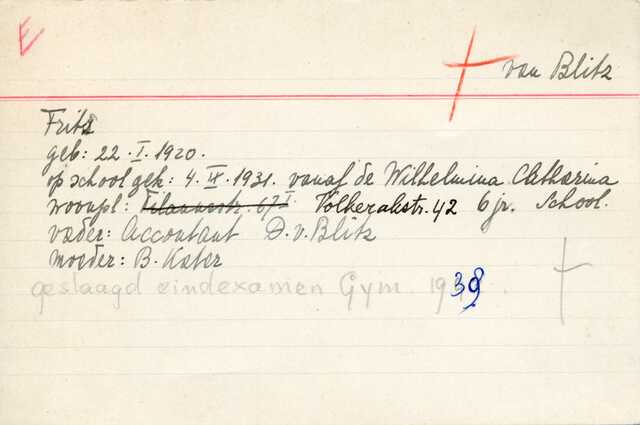 E
van Blitz
Fritz
geb: 22.I.1920.
op school gek: 4.IX.1931. vanaf de Wilhelmina Catharina
woonpl: Volkerakstr. 42 6 jr. School.
vader: Accountant D. v. Blitz
moeder: B. Kater
geslaagd eindexamen Gym. 1938.